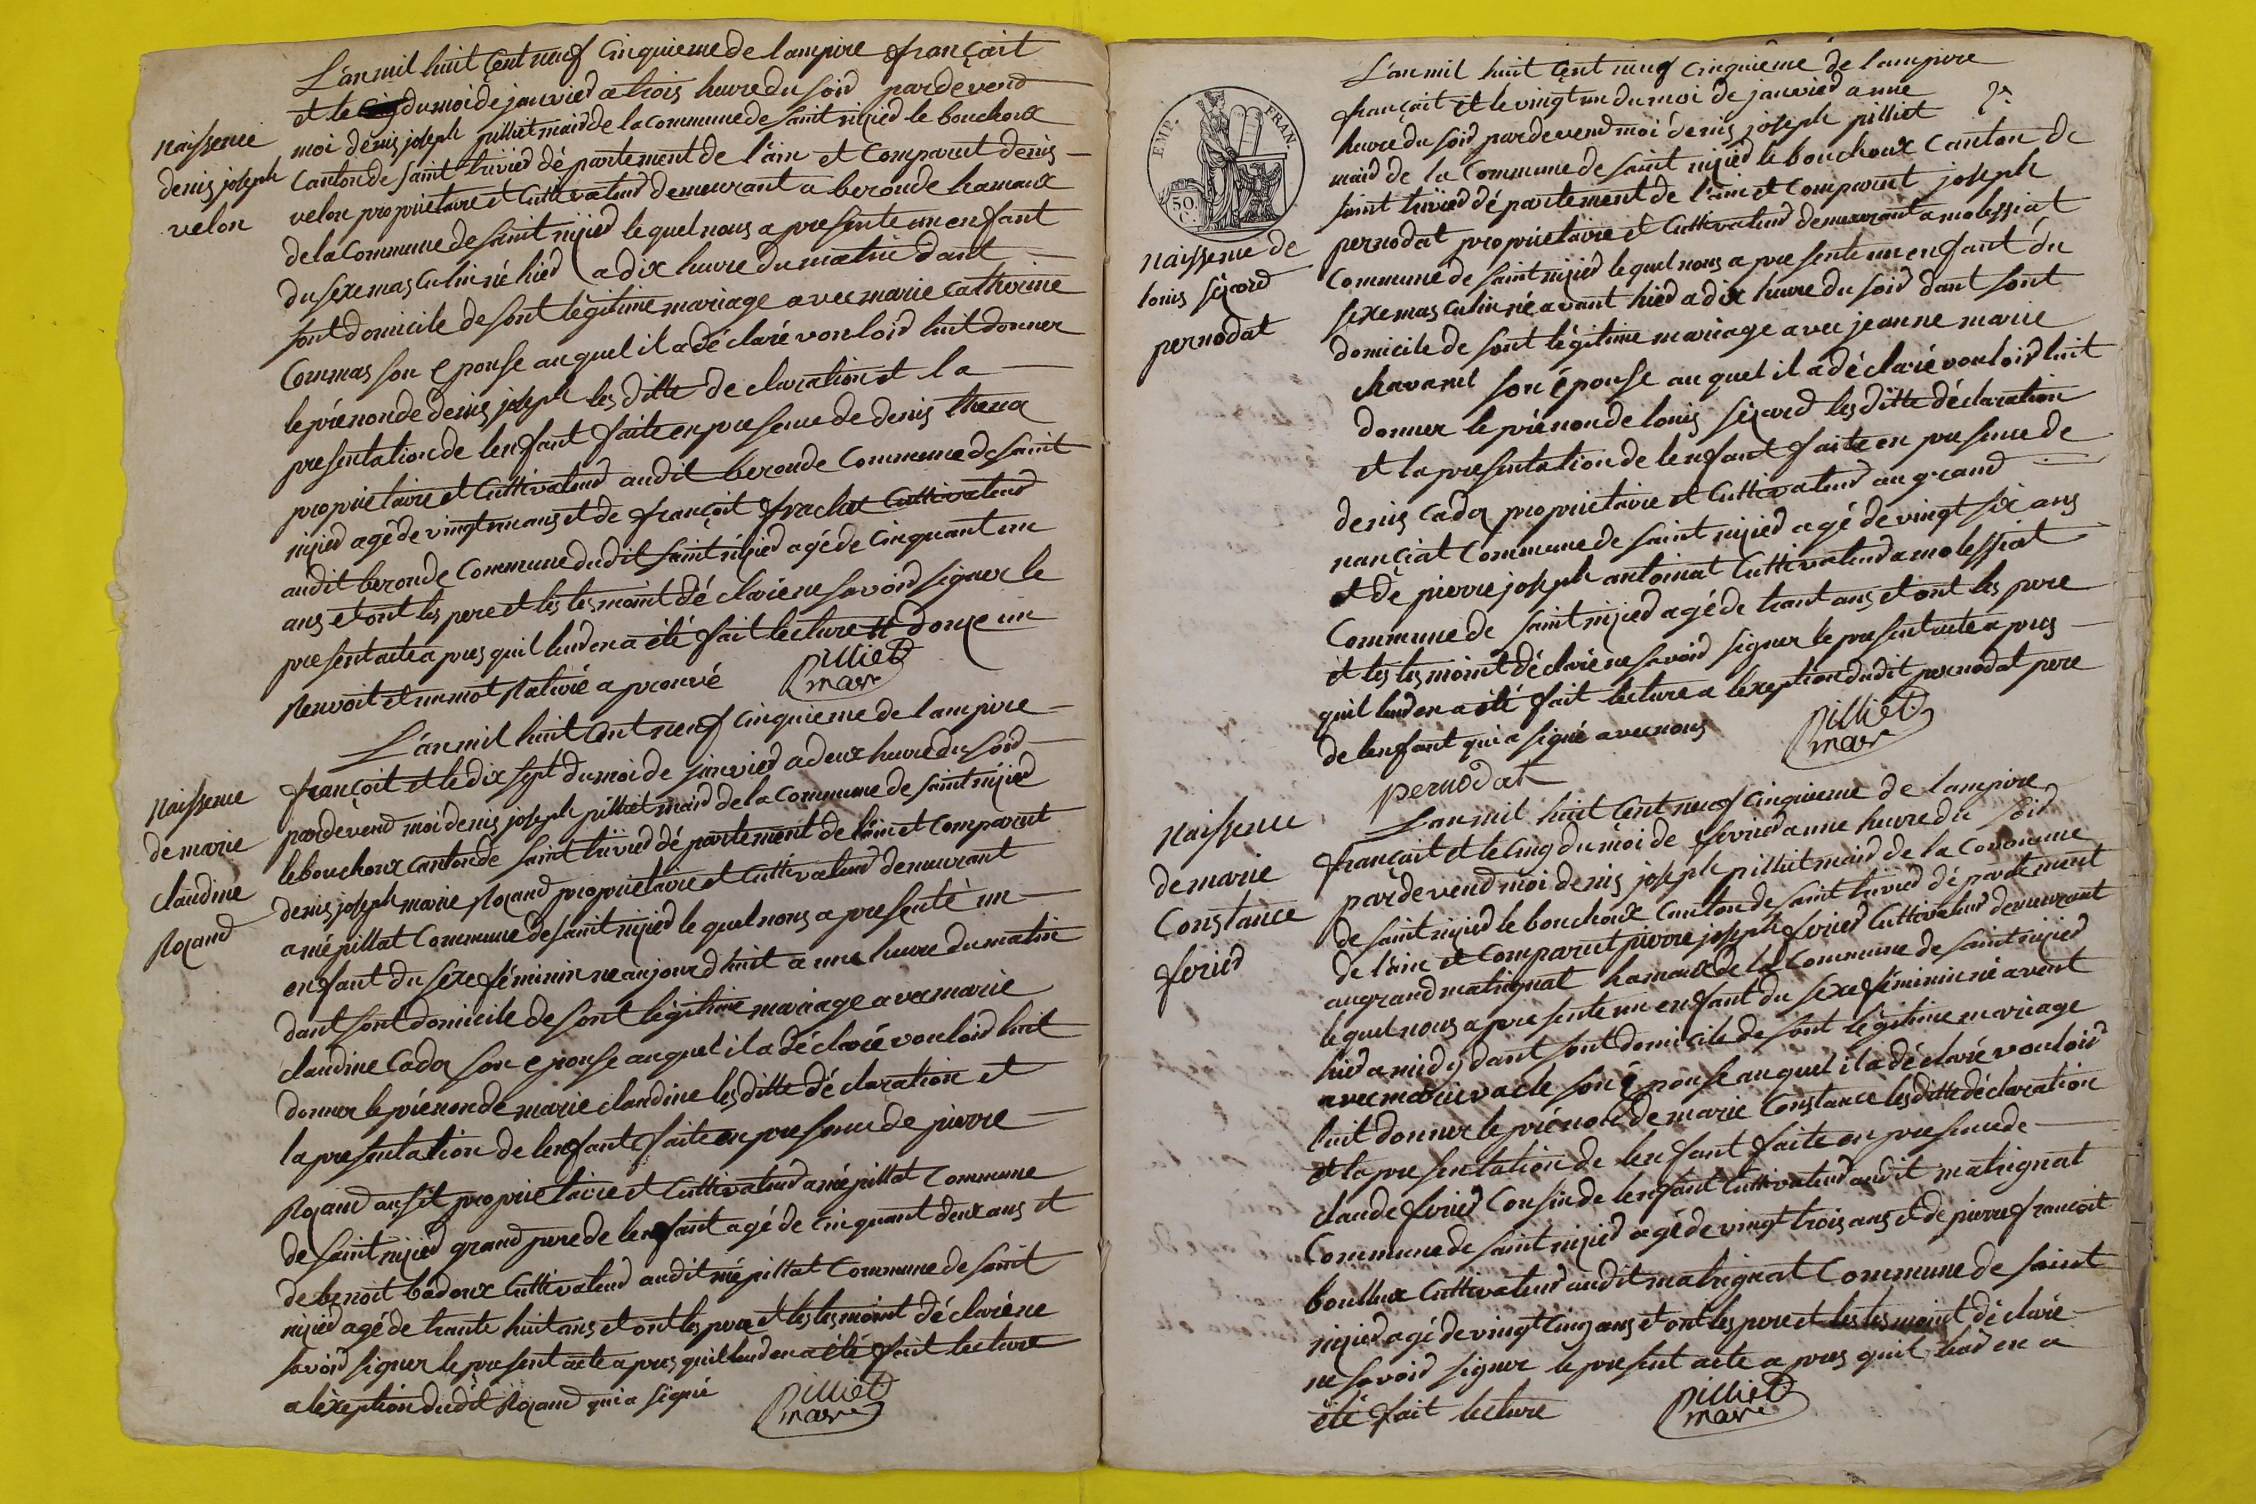 L'an mil huit cent neuf cinquieme de lampire françait
et le du moi de janvied a trois heure du soid pardevend
moi denis joseph pilliet maid de la commune de saint nizied le bouchoux
naissence
denis joseph
velon
canton de saint trivied département de l'ain et comparut denis
velon proprietaire et cuttivateud demeurant a beronde hamaux
de la commune de saint nizied le quel nous a presente un enfant
du sexe masculin né hied a dix heure du matin dant
sont domicile de sont légitime mariage avec marie catherine
commas son eponse auquel il a déclaré vouloid luit donner
le prénon de denis joseph les ditte declaration et la
presentation de lenfant faite en presence de denis thena
proprietaire et cuttivateud audit beronde commune de saint
nizied agé de vingt un ans et de françoit frachet cuttivateud
audit beronde commune dudit saint nizied agé de cinquant un
ans et ont les pere et les tesmoint déclaré ne savoid signer le
present acte apres quil leud en a été fait lecture et donxe un
renvoit et un mot rativé aprouvé
Pilliet
maire
L'an mil huit cent neuf cinquieme de lampire
françoit et le dix sept du moi de janvied a deux heure du soid
pardevend moi denis joseph pilliet maid de la commune de saint nizied
naissence
de marie
claudine
Rozand
le bouchoux canton de saint trivied département de l'ain et comparut
denis joseph marie Rozand proprietaire et cuttivateud demeurant
a mépillat commune de saint nizied le quel nous a presenté un
enfant du sexe féminin ne aujourdhuit a une heure du matin
dant sont domicile de sont légitime mariage avec marie
claudine cador son eponse auquel il a déclaré vouloid luit
donner le prénon de marie claudine les ditte déclaration et
la presentation de lenfant faite en presence de pierre
Rozand ausit proprietaire et cuttivateud a mépillat commune
de saint nizied grand pere de lenfant agé de cinquant deux ans et
de benoit badoux cuttivateud audit mépillat commune de saint
nizied agé de trante huit ans et ont les pere et les tesmoint déclaré ne
savoid signer le present acte apres quil leud en a été fait lecture
a léxeption dudit Rozand qui a signé
Pilliet
maire
L'an mil huit cent neuf cinquieme de lampire
françait et le vingt un du moi de janvied a une
heure du soid pardevend moi denis joseph pilliet
maid de la commune de saint nizied le bouchoux canton de
EMP. FRAN.
50.
C.
naissence de
louis sézard
pernodat
saint trivied département de l'ain et comparut joseph
pernodat proprietaire et cuttivateud demeurant a molessiat
commune de saint nizied le quel nous a presente un enfant du
sexe masculin né avant hied a dix heure du soid dant sont
domicile de sont légitime mariage avec jeanne marie
chavanel son éponse auquel il a déclaré vouloid luit
donner le prénon de louis sézard les ditte déclaration
et la presentation de lenfant faite en presence de
denis cador proprietaire et cuttivateud au grand
nançiat commune de saint nizied agé de vingt six ans
et de pierre joseph antoinat cuttivateud a molessiat
commune de saint nizied agé de trant ans et ont les pere
et les tesmoint déclaré ne savoid signer le present acte apres
quil leud en a été fait lecture a léxeption dudit pernodat pere
de lenfant qui a signé avec nous
Pilliet
maire
pernodat
L'an mil huit cent neuf cinquieme de lampire
françait et le cinq du moi de fevried a une heure du soid
pardevend moi denis joseph pilliet maid de la commune
naissence
de marie
constance
feried
de saint nizied le bouchoux canton de saint trivied département
de l'ain et comparut pierre joseph feried cuttivateud demeurant
au grand matrignat hamaux de la commune de saint nizied
le quel nous a presente un enfant du sexe féminin né avent
hied a midy dant sont domicile de sont légitime mariage
avec marie vacle son éponse auquel il a déclaré vouloid
luit donner le prénon de marie constance les ditte déclaration
et la presentation de lenfant faite en presence de
claude feried cousin de lenfant cuttivateud audit matrignat
commune de saint nizied agé de vingt trois ans et de pierre françoit
boulleux cuttivateud audit matrignat commune de saint
nizied agé de vingt cinq ans et ont les pere et les tesmoint déclaré
ne savoid signer le present acte apres quil leud en a
été fait lecture
Pilliet
maire